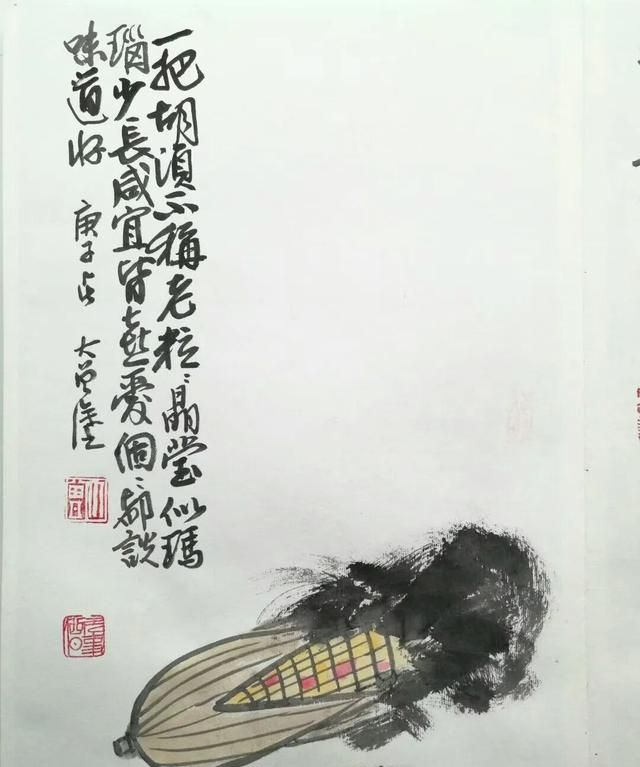 一把胡須不稱老粒〻晶瑩似瑪
瑙少長咸宜皆喜愛個〻都説
味道好
庚子 大